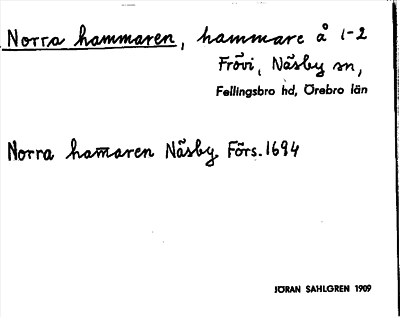 Norra hammaren, hammare å 1-2
Frövi, Näsby sn,
Fellingsbro hd, Örebro län
Norra ham̄aren Näsby Förs. 1694
JÖRAN SAHLGREN 1909